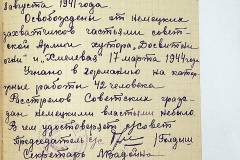 августа 1941 года
Освобождены от немецких
захватчиков частями совет-
ской Армии хутора, "Досвитни
огни" и "Хмелевая" 17 марта 1944 года
Угнано в германию на катор-
жные работы 42 человека
Расстрелов Советских граж-
дан немецкими властями небыло
В чем удостоверяет с/совет
Председатель с/с
Секретарь